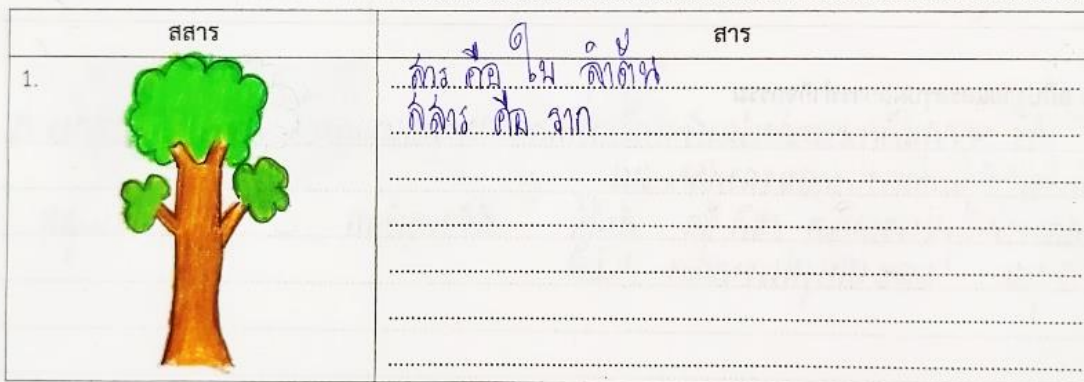 สสาร
สาร
1.
สาร คือ ใบ ลำต้น
สสาร คือ ราก